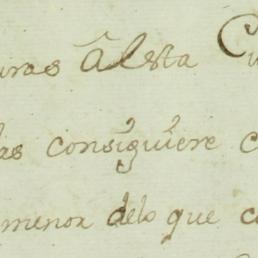 uras â Esta Cu
las consiguiere c
menor delo que c